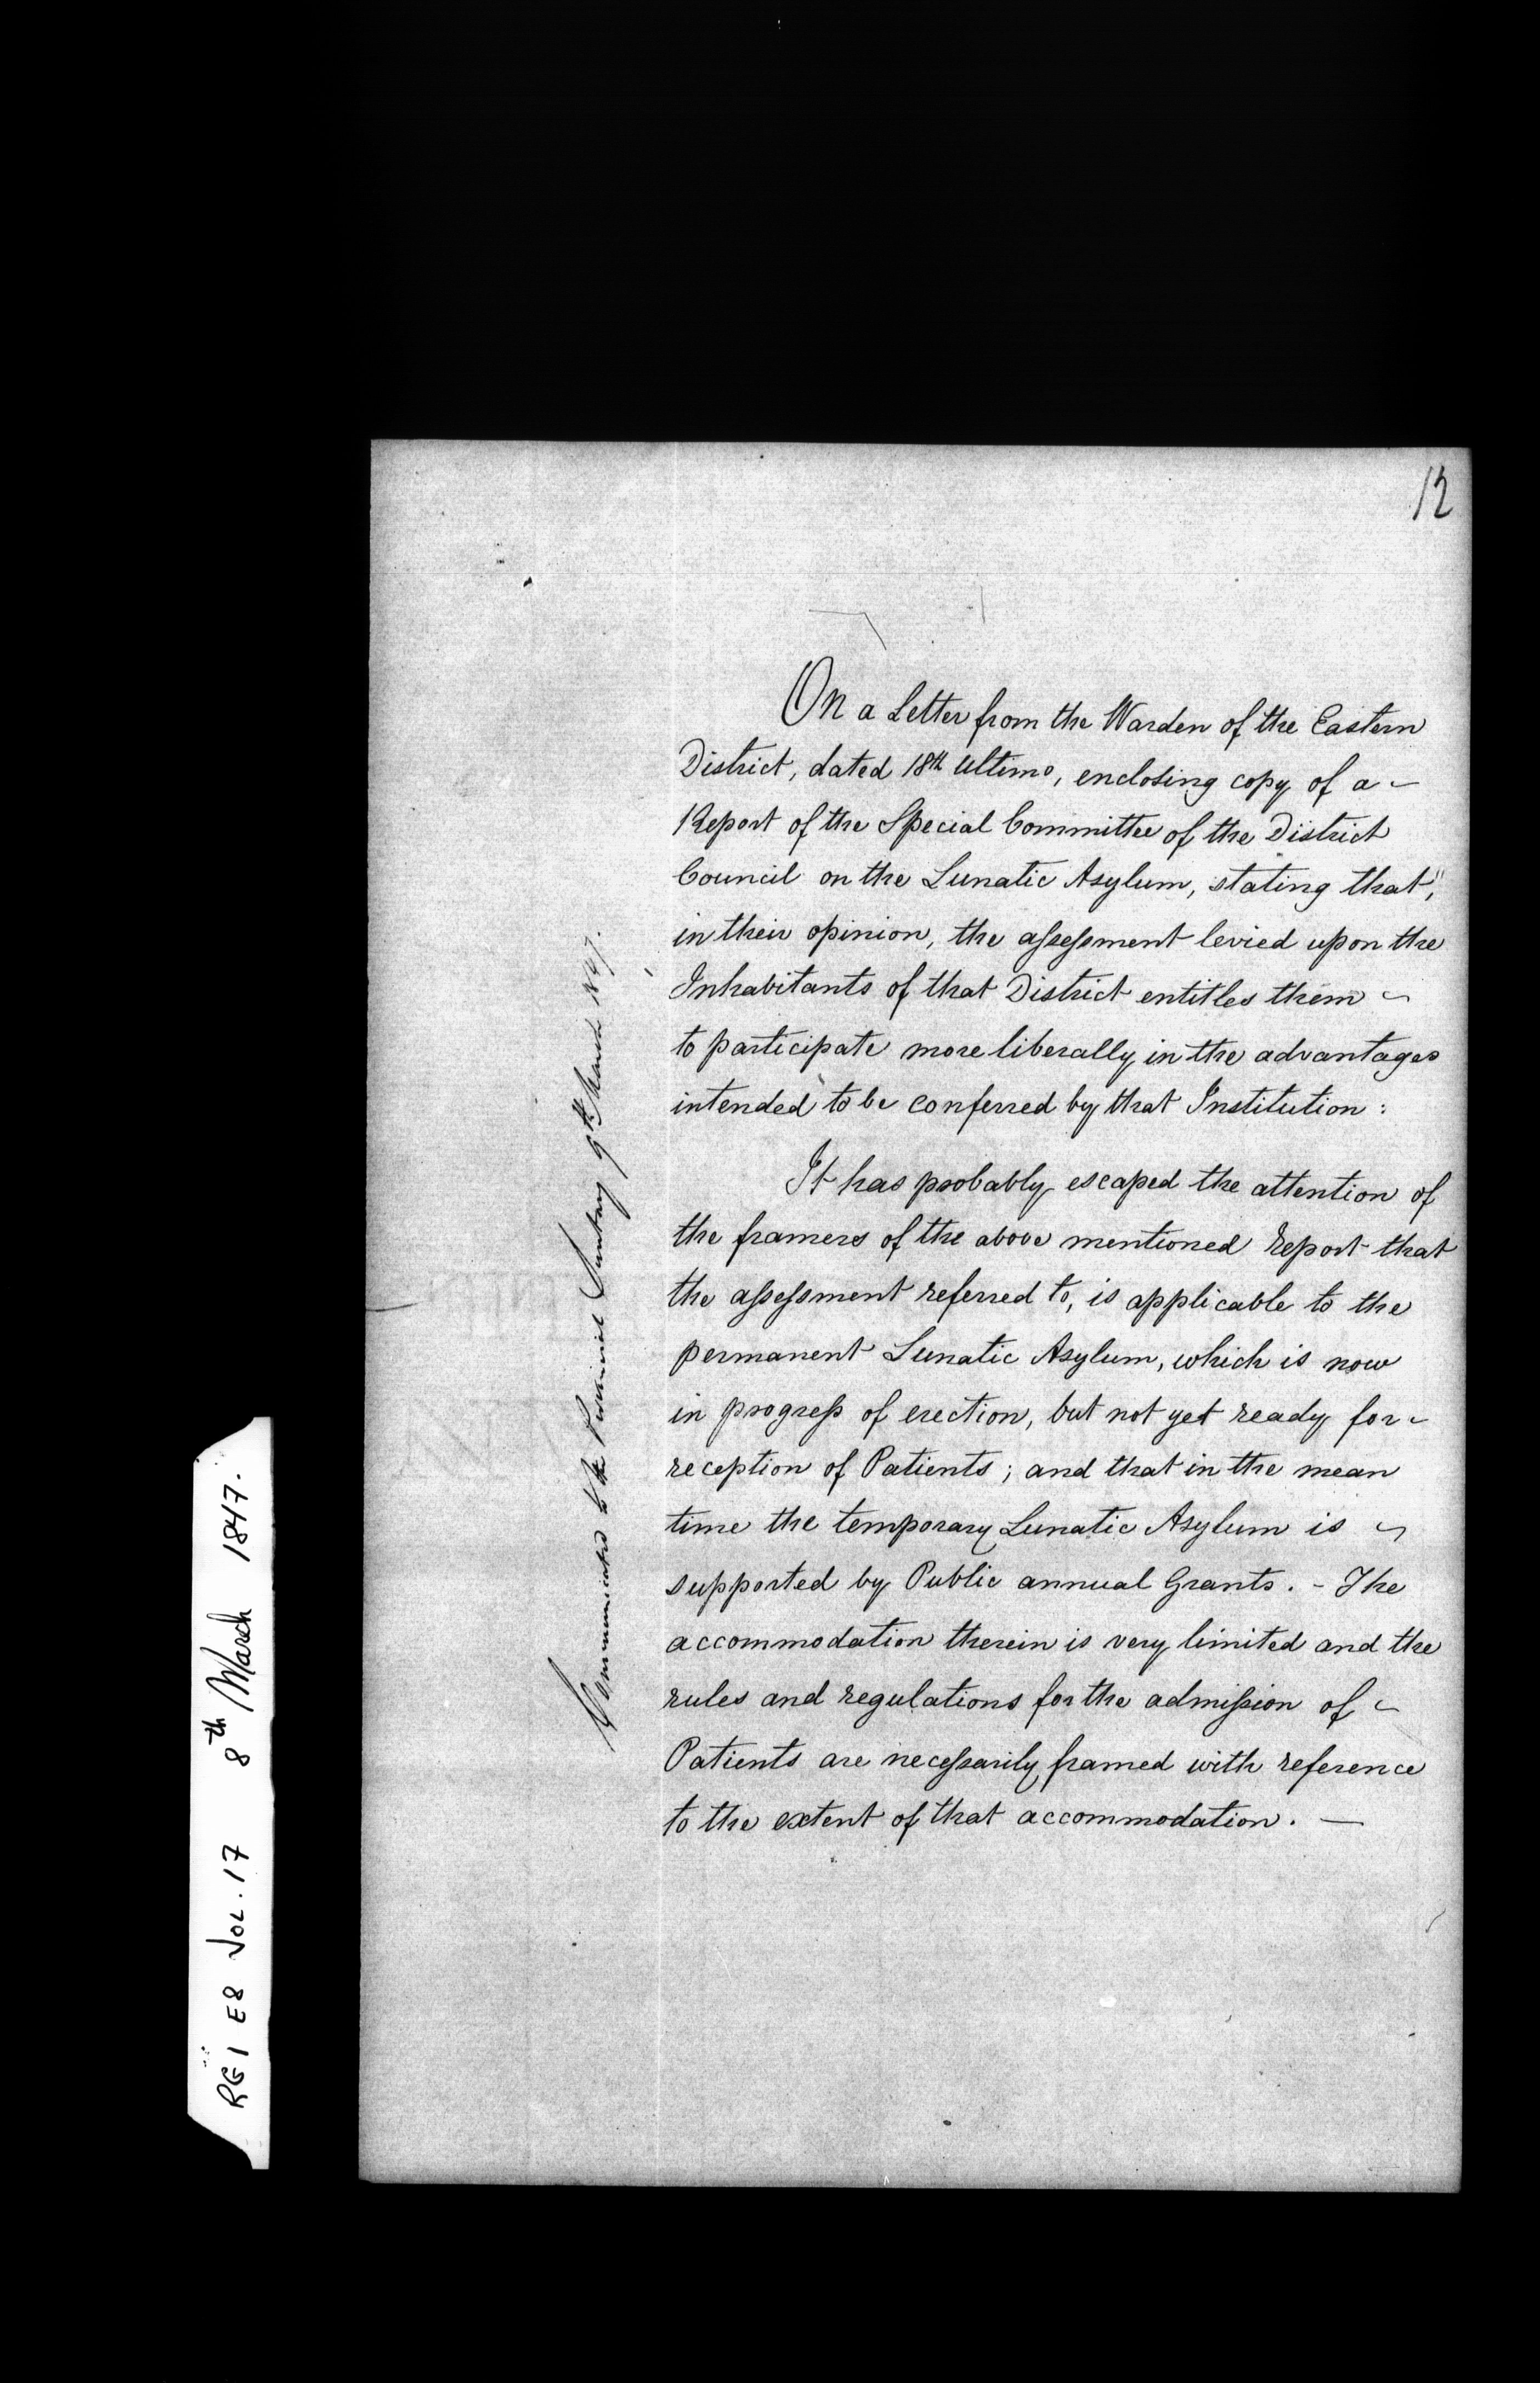 12
On a Letter from the Warden of the Eastern
District, dated 18th Ultimo, enclosing copy of a -
Report of the Special Committee of the District
Council on the Lunatic Asylum, stating that,"
in their opinion, the assessment levied upon the
Inhabitants of that District entitles them ~
to participate more liberally in the advantages
intended to be conferred by that Institution :
It has probably escaped the attention of
the framers of the above mentioned Report that
the assessment referred to, is applicable to the
permanent Lunatic Asylum, which is now
in progress of erection, but not yet ready for -
reception of Patients ; and that in the mean
time the temporary Lunatic Asylum is ~
supported by Public annual Grants. - The
accommodation therein is very limited and the
rules and regulations for the admission of ~
Patients are necessarily framed with reference
to the extent of that accommodation. —
Communicated to the Provincial Secretary 9th March 1847.
RG1 E8 VOL. 17 8th March 1847.